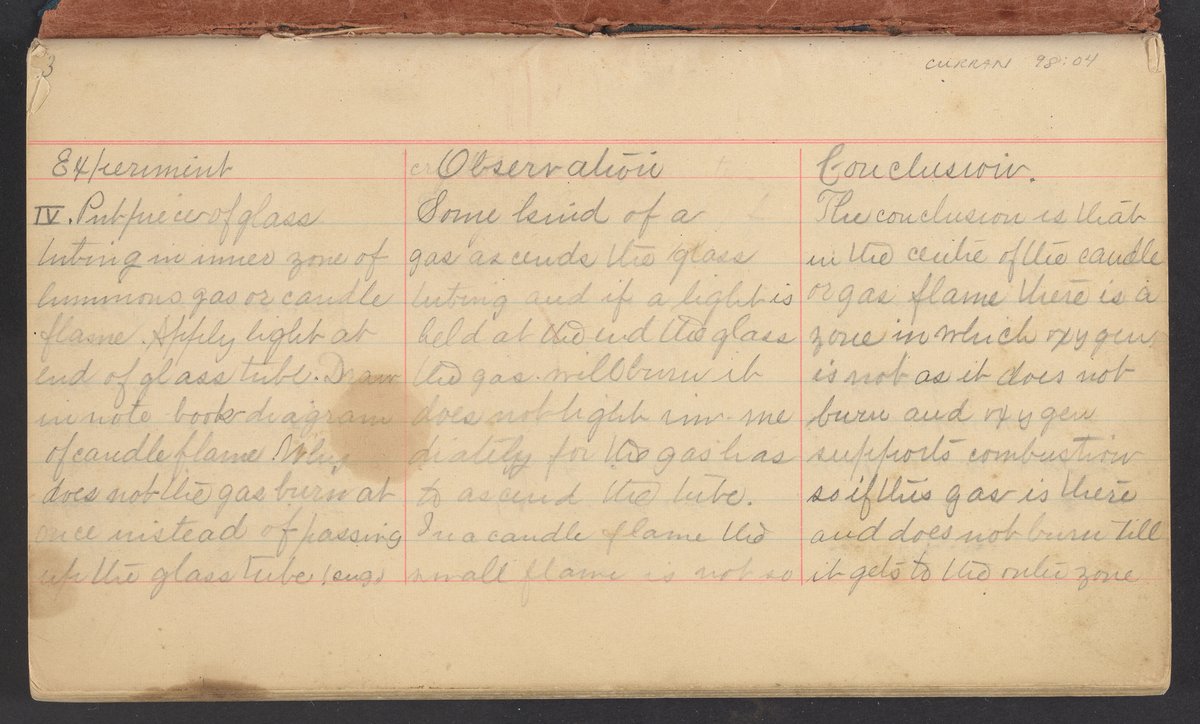 3
CURRAN 98:04
Experiment
IV. Put piece of glass
tubing in inner zone of
luminous gas or candle
flame. Apply light at
end of glass tube. Draw
in note book diagram
of candle flame. Why
does not the gas burn at
once instead of passing
up the glass tube
Observation
Some kind of a
gas ascends the glass
tubing and if a light is
held at the end the glass
the gas will burn it
does not light im me
diately for the gas has
to ascend the tube.
In a candle flame the
small flame is not so
Conclusion.
The conclusion is that
in the centre of the candle
or gas flame there is a
zone in which oxygen
is not as it does not
burn and oxygen
supports combustion
so if this gas is there
and does not burn till
it gets to the outer zone